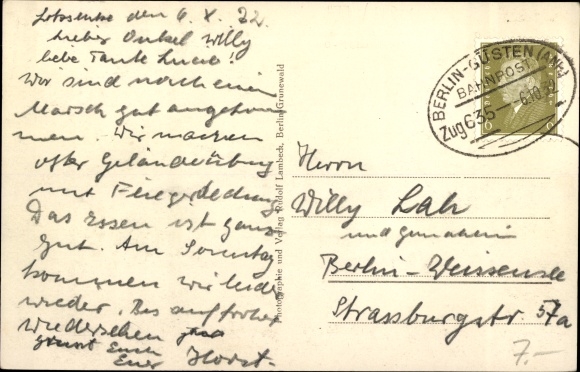 den 6. X. 32.
Lieber Onkel Willy
liebe Tante Lucie!
Wir sind nach einem
Marsch gut angekom
men. Wir machen
öfter Geländeübung
mit Fliegerdeckung
Das Essen ist ganz
gut. Am Sonntag
kommen wir leider
wieder. Bis auf frohes
Wiedersehen
grüsst Euch
Euer Horst.
Photographie und Verlag Rudolf Lambeck, Berlin-Grunewald
BERLIN-GÜSTEN (ANH)
BAHNPOST
Zug 635
6.10.32
6 6
Herrn
Willy Lah
und Gemahlin
Berlin-Weissensee
Strassburgstr 57a
7.-